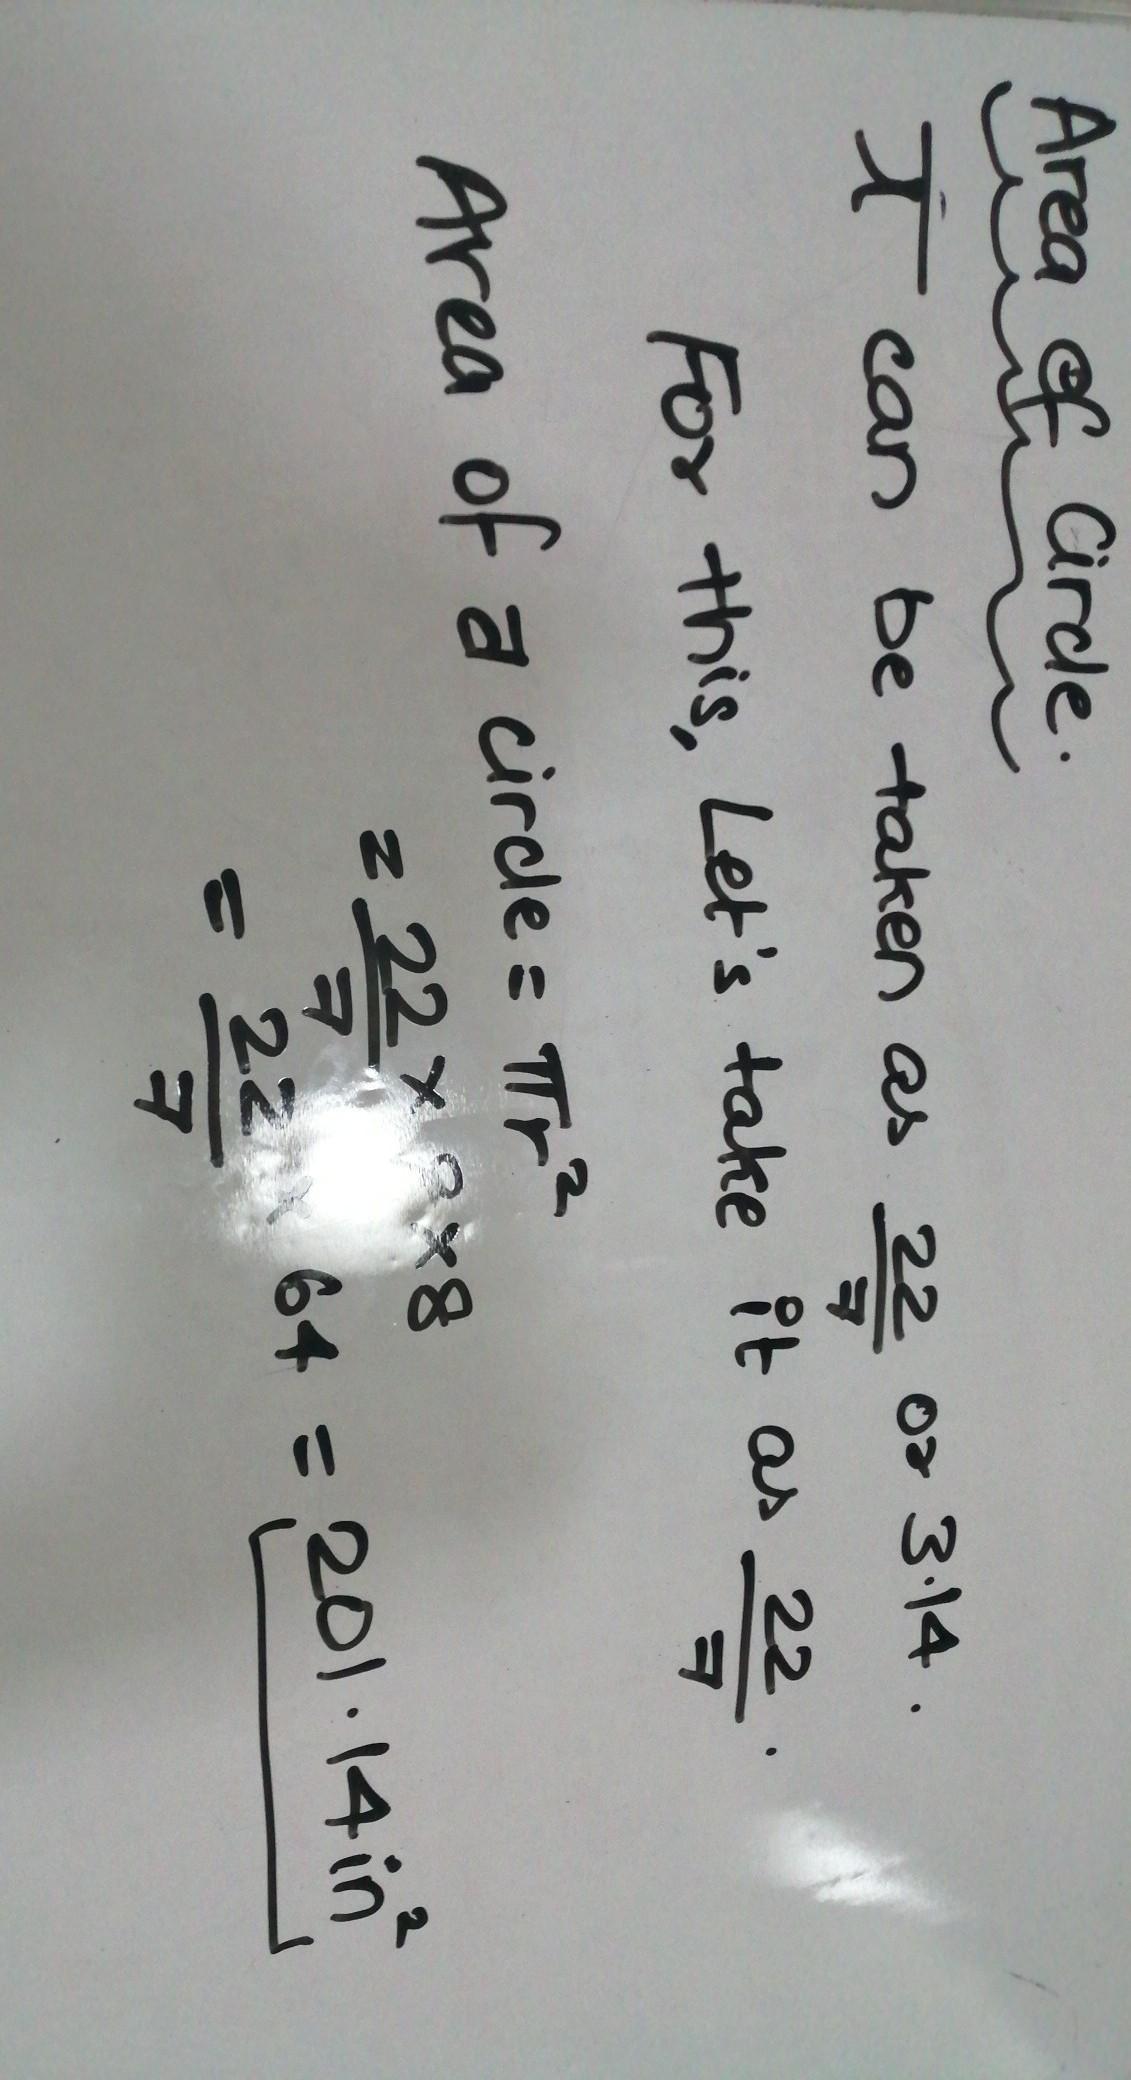 Area of Circle.
π can be taken as 22/7 or 3.14.
For this, Let's take it as 22/7.
Area of a circle = πr²
= 22/7 × 8 × 8
= 22/7 × 64 = 201.14in²